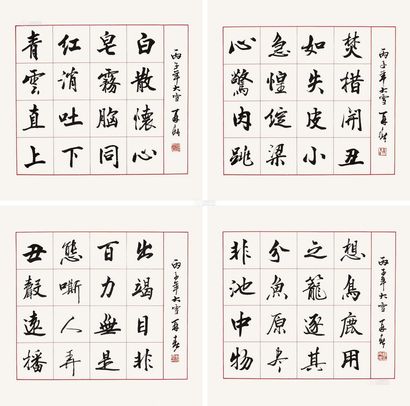 青紅皂白
雲消霧散
直吐胸懷
上下同心
丙子年大雪
心急如焚
驚惶失措
肉綻皮開
跳梁小丑
丙子年大雪
丑態百出
聲嘶力竭
遠人無目
播弄是非
丙子年大雪
非分之想
池魚籠鳥
中原逐鹿
物尽其用
丙子年大雪